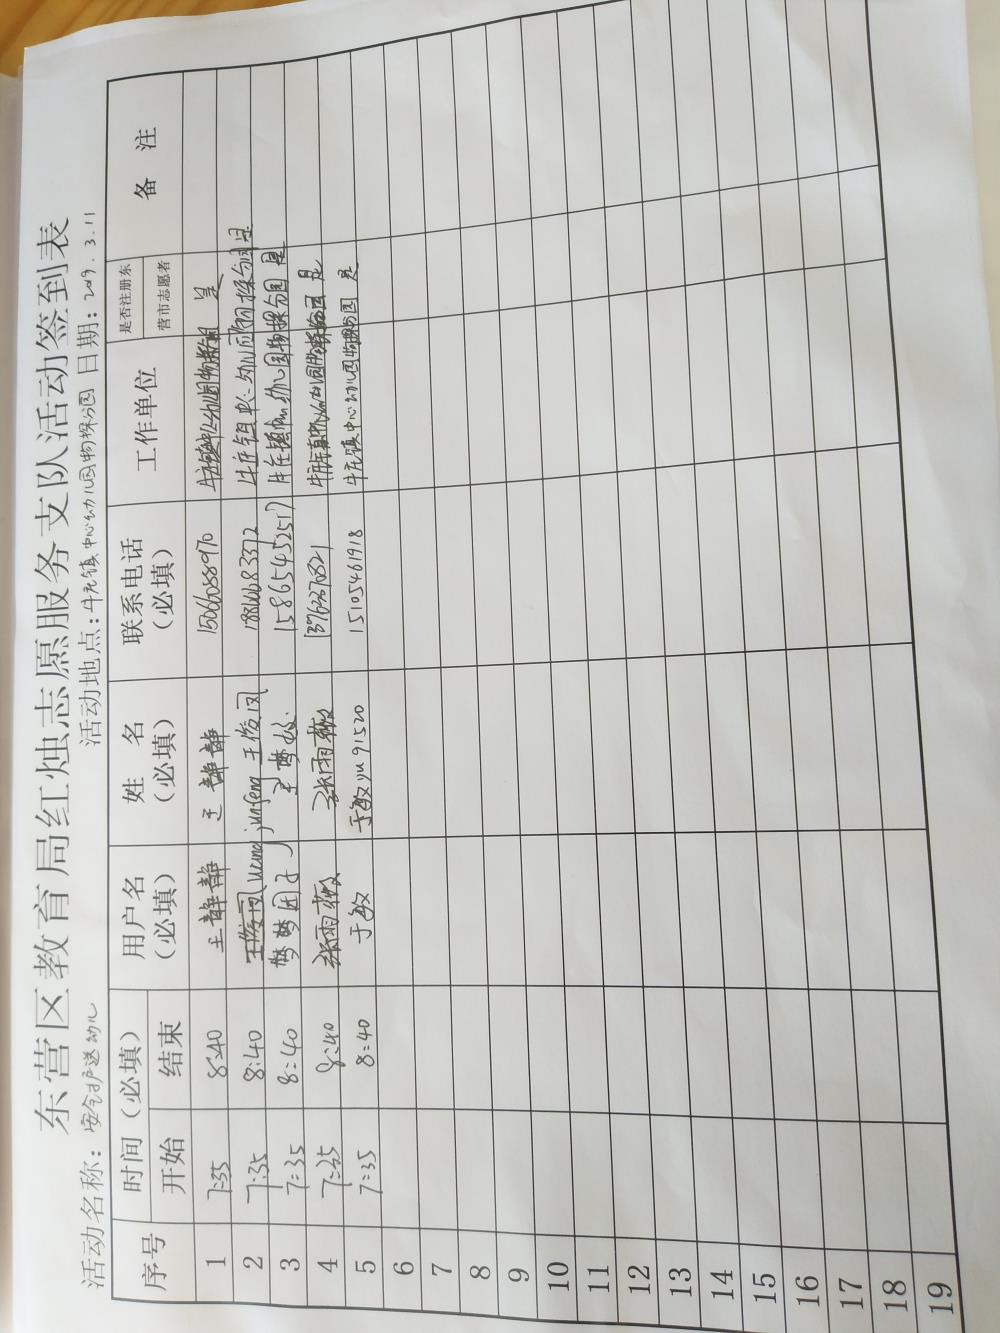 东营区教育局红烛志愿服务支队活动签到表
活动名称：安全护送幼儿 活动地点：牛庄镇中心幼儿园物探分园 日期：2019.3.11
序号 时间（必填） 用户名（必填） 姓名（必填） 联系电话（必填） 工作单位 是否注册东营市志愿者 备注
开始 结束
1 7:35 8:40 王静静 王静静 15066088970 是
2 7:35 8:40 王俊凤(wang junfeng 王俊凤 牛庄镇中心幼儿园物探分园 是
3 7:35 8:40 15865452517 牛庄镇中心幼儿园物探分园 是
4 7:35 8:40 牛庄镇中心幼儿园物探分园 是
5 7:35 8:40 于敏 于敏yu91520 15105461918 牛庄镇中心幼儿园物探分园 是
6
7
8
9
10
11
12
13
14
15
16
17
18
19